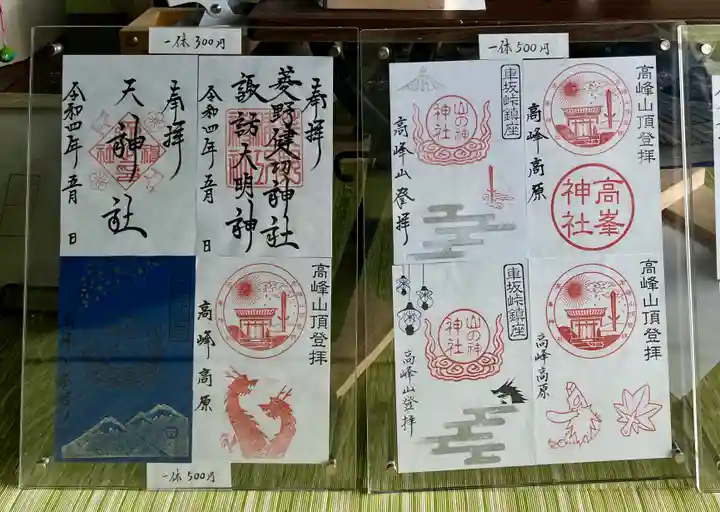 一体 300円
奉拝
菱野健功神社
諏訪大明神
令和四年 五月 日
奉拝
天ノ神ノ社
令和四年 五月 日
高峰山頂登拝
高峰高原
一体 500円
一体 500円
高峰山頂登拝
高峰高原
高峯
神社
車坂峠鎮座
山の神
神社
高峰山登拝
高峰山頂登拝
高峰高原
車坂峠鎮座
山の神
神社
高峰山登拝